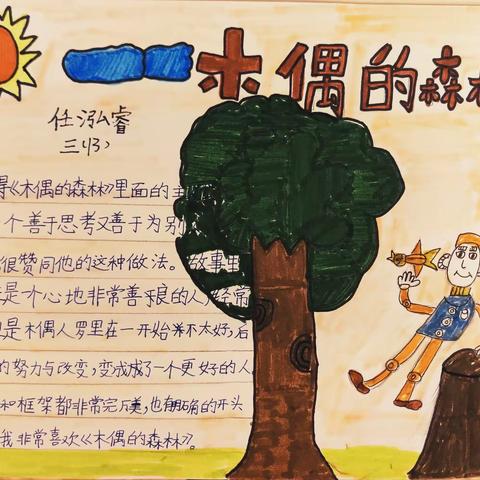 一木偶的森林
任泓睿
三(3)
得《木偶的森林》里面的主
个善于思考又善于为别
很赞同他的这种做法。故事里
是才心地非常善良的人,经常
但是木偶人罗里在一开始米不太好,后
的努力与改变,变成成了一个更好的人
和框架都非常完美,也有明确的开头
我非常喜欢《木偶的森林》。